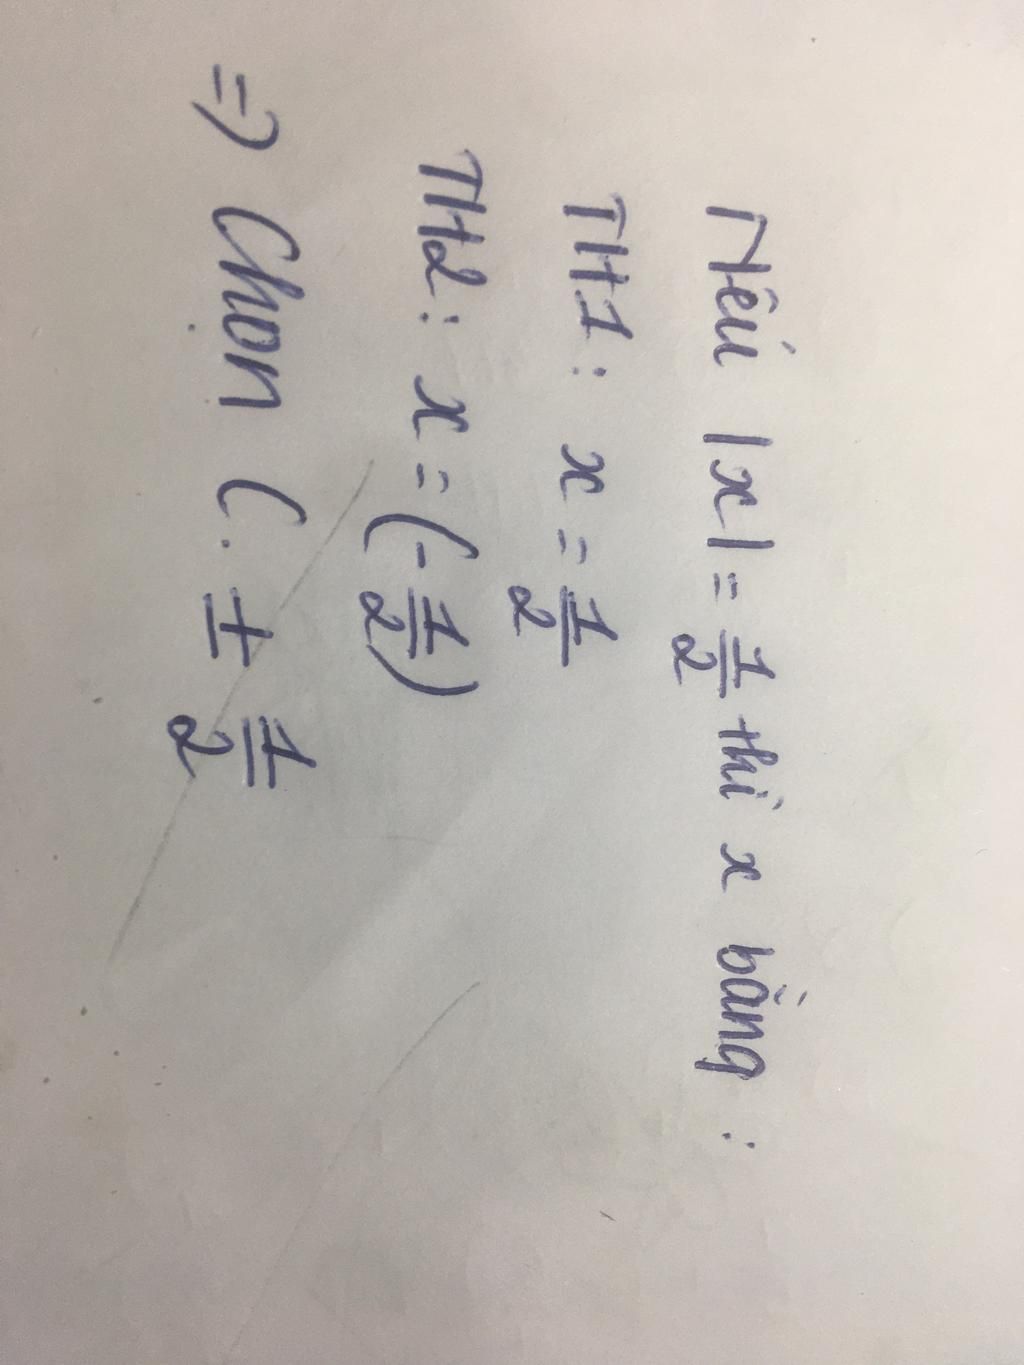 Nếu |x| = 1/2 thì x bằng :
TH1 : x = 1/2
TH2 : x = (-1/2)
=> Chọn C. ± 1/2